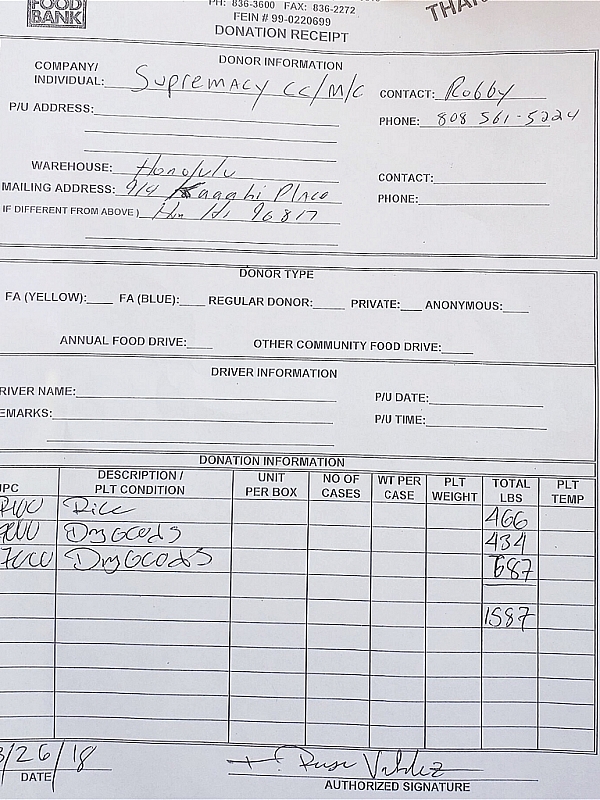 FOOD
BANK
PH: 836-3600 FAX: 836-2272
FEIN # 99-0220699
DONATION RECEIPT
THAN
DONOR INFORMATION
COMPANY/
INDIVIDUAL: Supremacy CC/M/C
CONTACT: Robby
P/U ADDRESS:
PHONE: 808 561-5224
WAREHOUSE: Honolulu
CONTACT:
MAILING ADDRESS: 914 Kaaahi Place
PHONE:
IF DIFFERENT FROM ABOVE) Hon HI 96817
DONOR TYPE
FA (YELLOW): FA (BLUE): REGULAR DONOR: PRIVATE: ANONYMOUS:
ANNUAL FOOD DRIVE: OTHER COMMUNITY FOOD DRIVE:
DRIVER INFORMATION
RIVER NAME: P/U DATE:
EMARKS: P/U TIME:
DONATION INFORMATION
UPC DESCRIPTION / PLT CONDITION UNIT PER BOX NO OF CASES WT PER CASE PLT WEIGHT TOTAL LBS PLT TEMP
Rice 466
Dry Goods 434
7000 Dry Goods 687
1587
3/26/18
DATE
Valdez
AUTHORIZED SIGNATURE